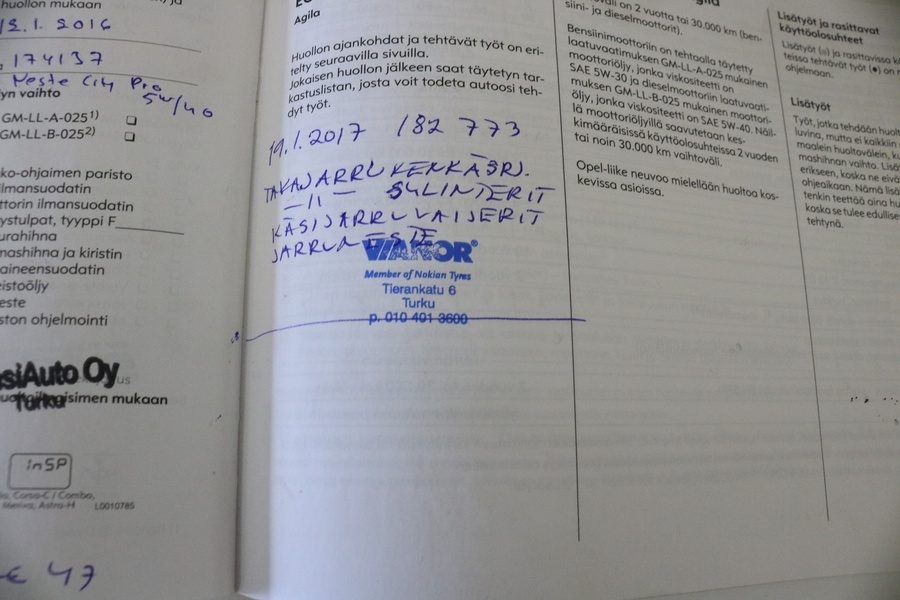 huollon mukaan
12.1.2016
174137
Neste City Pro
5W/40
yn vaihto
GM-LL-A-025¹)
GM-LL-B-025²)
ko-ohjaimen paristo
ilmansuodatin
ttorin ilmansuodatin
ystulpat, tyyppi F
urahihna
mashihna ja kiristin
aineensuodatin
eistoöljy
este
ston ohjelmointi
siAuto Oy
Turku
isimen mukaan
inSP
Corsa-C / Combo,
Meriva, Astra-H L0010785
€ 47
Agila
Huollon ajankohdat ja tehtävät työt on eri-
telty seuraavilla sivuilla.
Jokaisen huollon jälkeen saat täytetyn tar-
kastuslistan, josta voit todeta autoosi teh-
dyt työt.
19.1.2017 182 773
TAKAJARRUKENKÄSRJ.
–II– SYLINTERIT
KÄSIJARRUVAIJERIT
JARRUNESTE
VIANOR®
Member of Nokian Tyres
Tierankatu 6
Turku
p. 010 401 3600
on 2 vuotta tai 30.000 km (ben-
siini- ja dieselmoottorit).
Bensiinimoottoriin on tehtaalla täytetty
laatuvaatimuksen GM-LL-A-025 mukainen
moottoriöljy, jonka viskositeetti on
SAE 5W-30 ja dieselmoottoriin laatuvaati-
muksen GM-LL-B-025 mukainen moottori-
öljy, jonka viskositeetti on SAE 5W-40. Näil-
lä moottoriöljyillä saavutetaan kes-
kimääräisissä käyttöolosuhteissa 2 vuoden
tai noin 30.000 km vaihtoväli.
Opel-liike neuvoo mielellään huoltoa kos-
kevissa asioissa.
Lisätyöt ja rasittavat
käyttöolosuhteet
Lisätyöt (o) ja rasittavissa k
teissa tehtävät työt (●) on m
ohjelmaan.
Lisätyöt
Työt, jotka tehdään huolt
luvina, mutta ei kaikkiin
maalein huoltovälein, ku
mashihnan vaihto. Lisät
erikseen, koska ne eivä
ohjeaikaan. Nämä lisä
tenkin teettää aina hu
koska se tulee edullise
tehtynä.